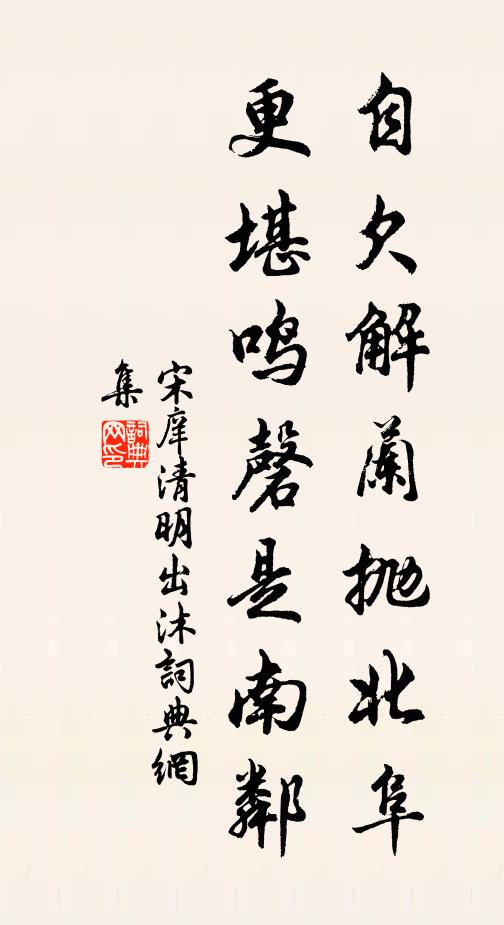 自欠解蘭抛北阜
更堪鸣磬是南鄰
宋庠清明出沐詞典網
集
詞典
网印